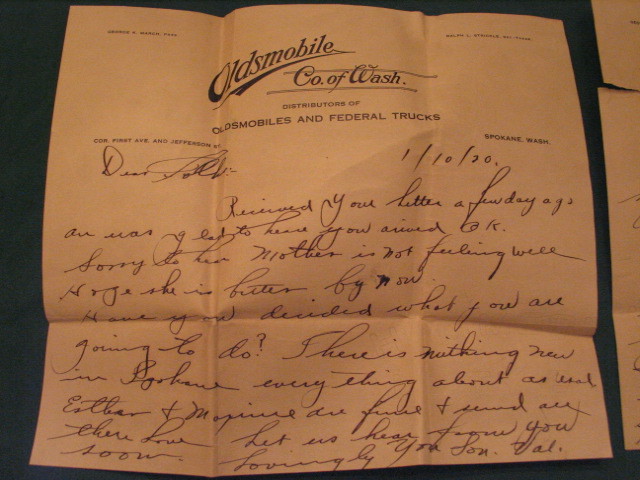 GEORGE R. MARCH, PRES.
Oldsmobile
Co. of Wash.
DISTRIBUTORS OF
OLDSMOBILES AND FEDERAL TRUCKS
COR. FIRST AVE. AND JEFFERSON ST.
SPOKANE, WASH.
1/10/20.
Dear Folks:-
Received Your letter a few day ago
an was glad to hear you arived OK.
Sorry to hear Mother is not feeling well
Hope she is better by now.
Have you decided what you are
going to do? There is nothing new
in Spokane everything about as usual
Esther & Maxine are fine & send all
there Love Let us hear from you
soon. Lovingly Your Son. Val.